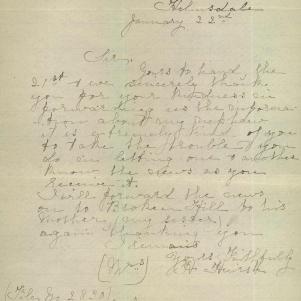 Helmsdale
January 22nd
Sir,
Yours to hand the
21st & we sincerely thank
you for your kindness in
forwarding us the informa
tion about my nephew
it is extremely kind of you
to take the trouble you
do in letting one & another
know the news as you
receive it.
I will forward the news
on to Broken Hill to his
mother (my sister)
again thanking you
I remain
Yours Faithfully
(Mrs) Hurst